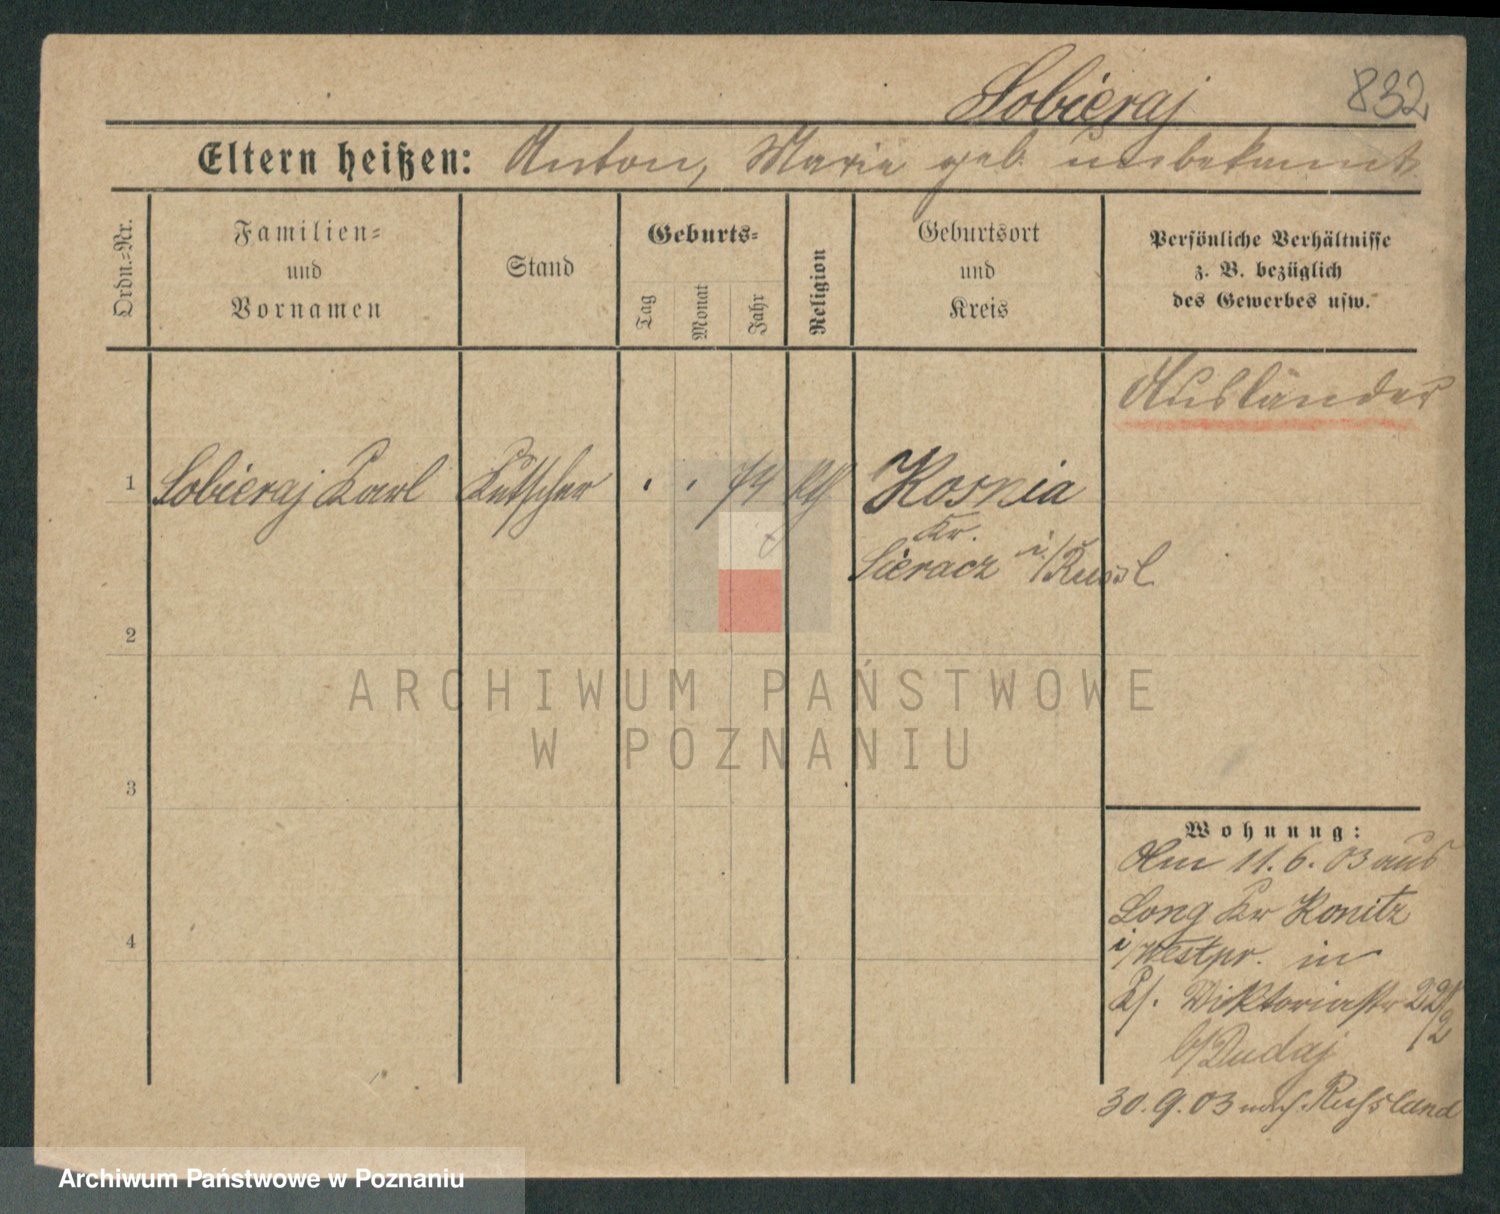 Sobieraj
832
Eltern heißen: Anton, Marie geb. unbekannt
Ordn.=Nr.
Familien=
und
Vornamen
Stand
Geburts=
Tag
Monat
Jahr
Religion
Geburtsort
und
Kreis
Persönliche Verhältnisse
z. B. bezüglich
des Gewerbes usw.
Ausländer
1 Sobieraj Karl Kutscher 74 Kosnia
Kr.
Sieracz i/Russl
2
3
4
ARCHIWUM PAŃSTWOWE
W POZNANIU
Wohnung:
Am 11.6.03 aus
Long Kr Konitz
i/Westpr. in
Viktoriastr 22/2
b/Dudaj
30.9.03 nach Russland
Archiwum Państwowe w Poznaniu